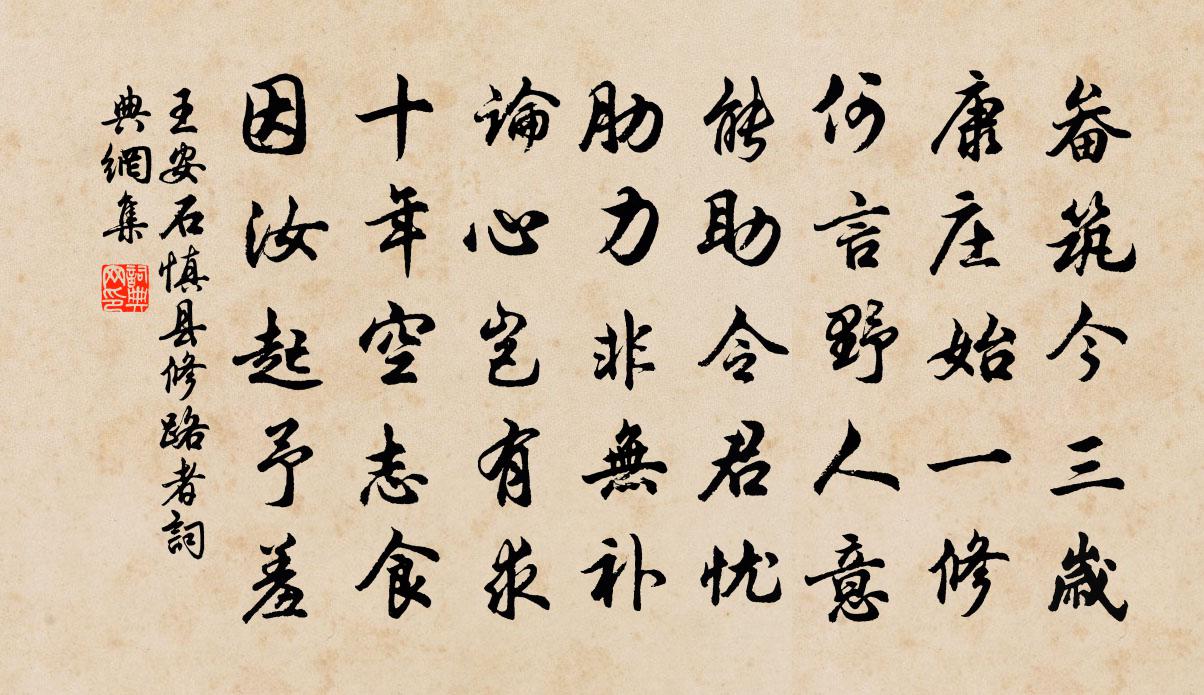 畚筑今三歲
康庄始一修
何言野人意
能助令君忧
肋力非無补
論心岂有求
十年空志食
因汝起予羞
王安石慎县修路者詞
典網集
詞典
网印